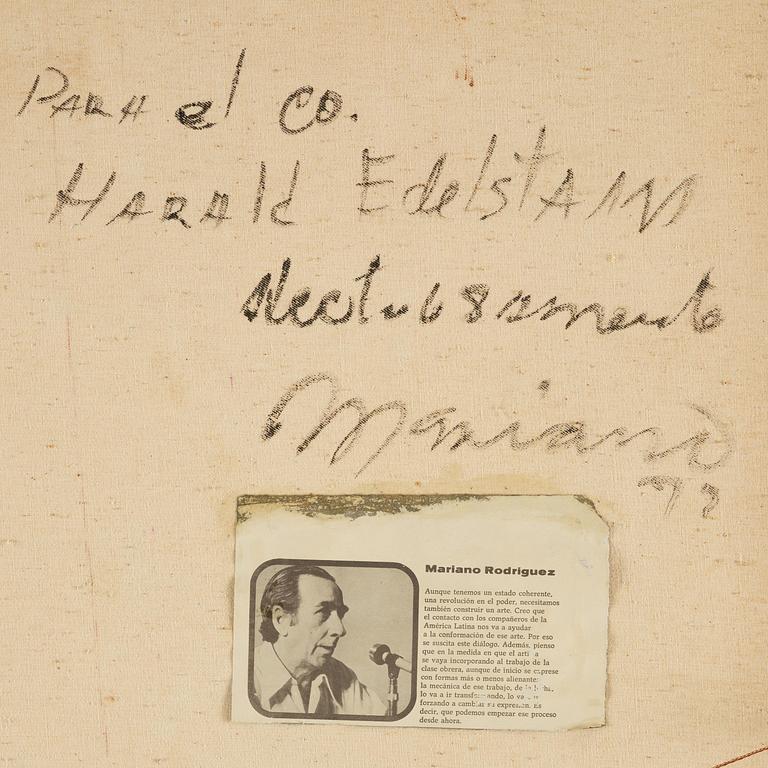 PARA el co.
HARAld EdelstAM
Mariano
Mariano Rodríguez
Aunque tenemos un estado coherente,
una revolución en el poder, necesitamos
también construir un arte. Creo que
el contacto con los compañeros de la
América Latina nos va a ayudar
a la conformación de ese arte. Por eso
se suscita este diálogo. Además, pienso
que en la medida en que el arti a
se vaya incorporando al trabajo de la
clase obrera, aunque de inicio se exprese
con formas más o menos alienante:
la mecánica de ese trabajo, de
lo va a ir ando, lo va
forzando a cambiar su expresión. Es
decir, que podemos empezar ese proceso
desde ahora.